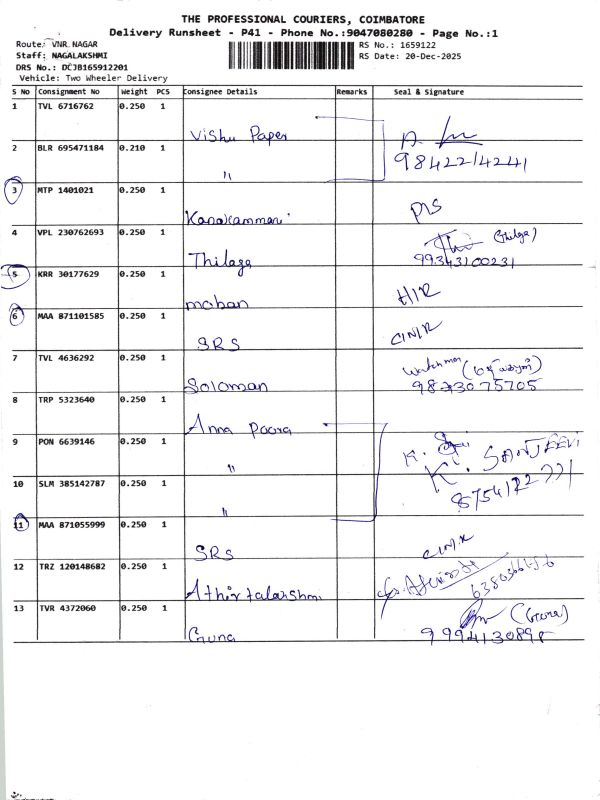 THE PROFESSIONAL COURIERS, COIMBATORE
Delivery Runsheet - P41 - Phone No.:9047080280 - Page No.:1
Route: VNR NAGAR
RS No.: 1659122
Staff: NAGALAKSHMI
RS Date: 20-Dec-2025
DRS No.: DCJB165912201
Vehicle: Two Wheeler Delivery
S No Consignment No Weight PCS Consignee Details Remarks Seal & Signature
1 TVL 6716762 0.250 1
Vishu Paper
2 BLR 695471184 0.210 1
"
9842214241
3 MTP 1401021 0.250 1
4 VPL 230762693 0.250 1
Thilaga
(Thilga)
99343100231
5 KRR 30177629 0.250 1
mohan
6 MAA 871101585 0.250 1
SRS
7 TVL 4636292 0.250 1
Soloman
watchman
8 TRP 5323640 0.250 1
Anna Poora
9 PON 6639146 0.250 1
"
K. SANJEEVI
10 SLM 385142787 0.250 1
"
11 MAA 871055999 0.250 1
SRS
12 TRZ 120148682 0.250 1
13 TVR 4372060 0.250 1
Guna
(Guna)